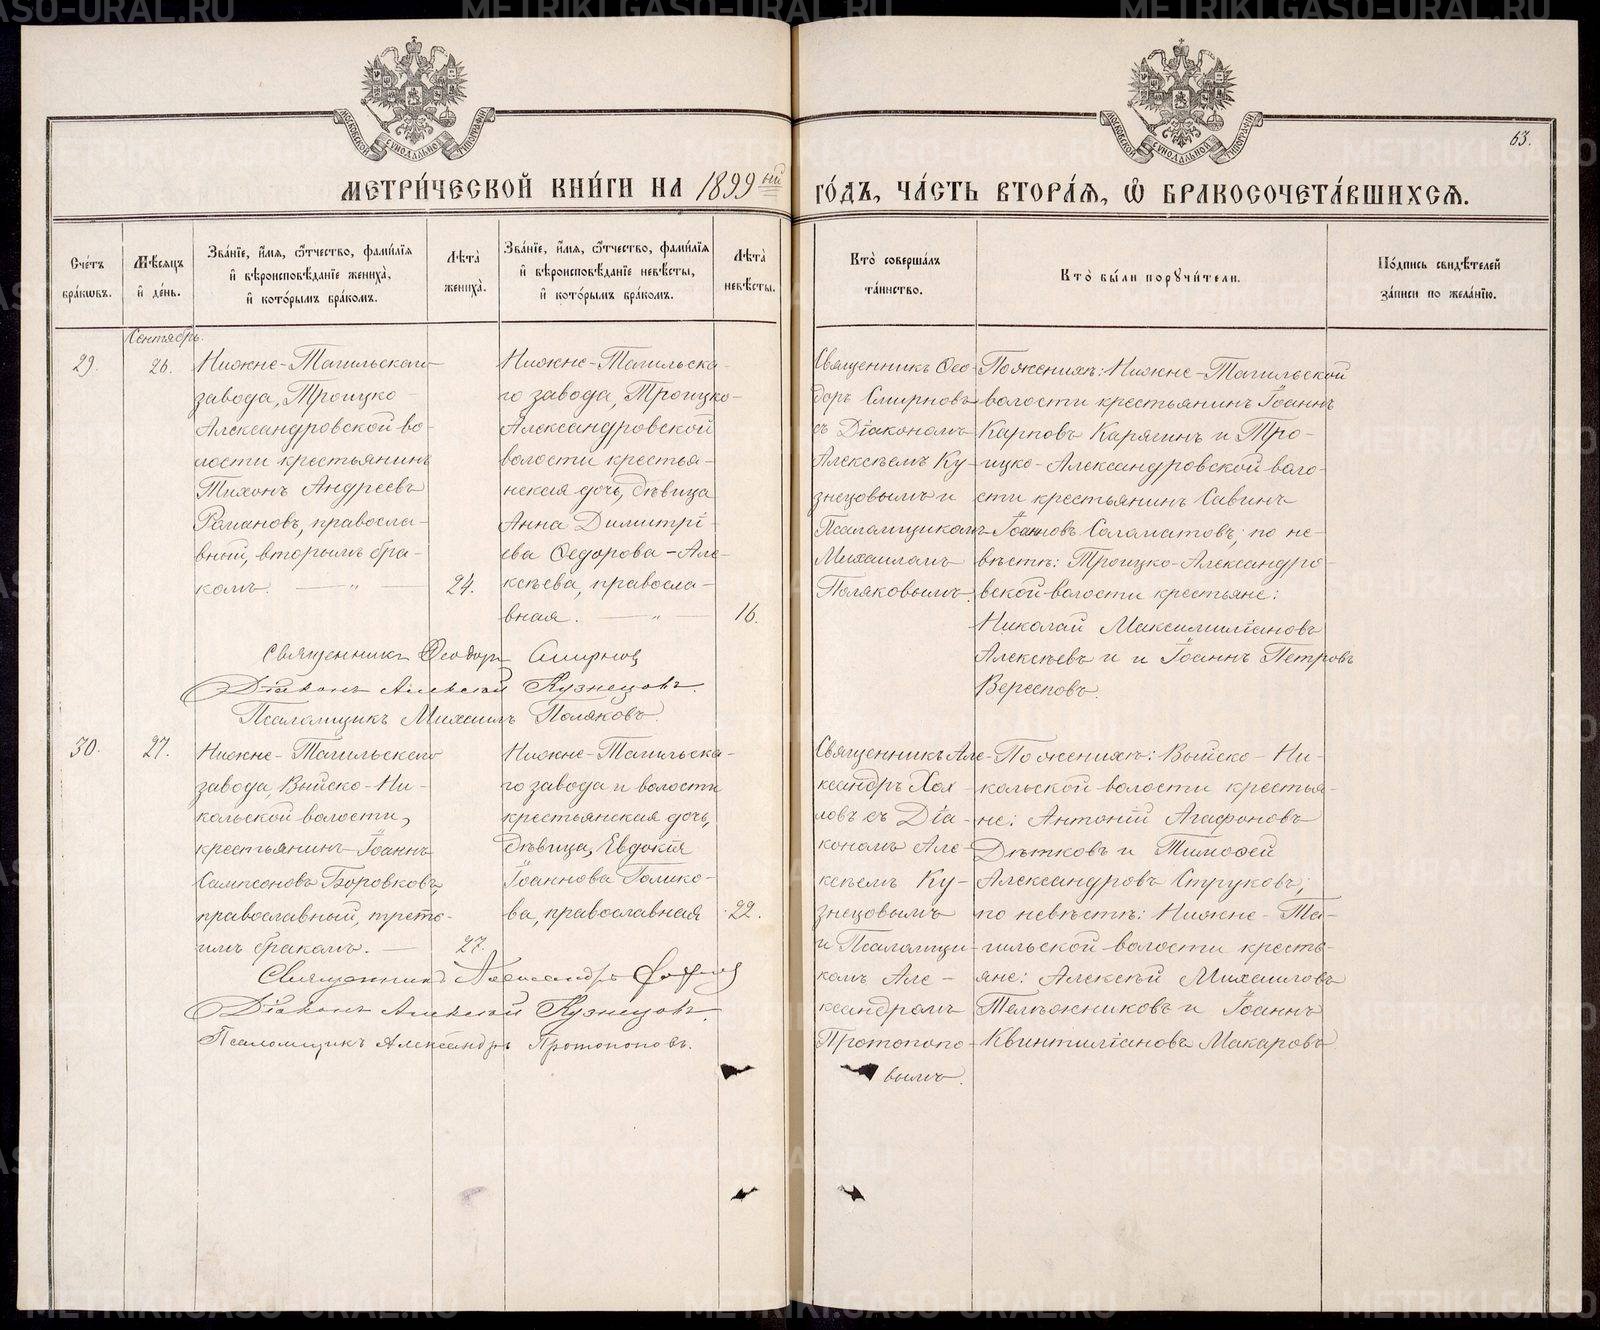 МЕТРИ́ЧЕСКОЙ КНИ́ГИ НА 1899ый
ГО́ДЪ, ЧА́СТЬ ВТОРА́Я, Ѡ БРАКОСОЧЕТА́ВШИХСЯ.
63.
Сче́тъ бра́кѡвъ.
Мѣсяцъ и де́нь.
Зва́нїе, и́мя, ѻ҆́тчество, фами́лїя
и вѣроисповѣ́данїе жениха̀,
и кото́рымъ бра́комъ.
Лѣта̀ жениха̀.
Зва́нїе, и́мя, ѻ҆́тчество, фами́лїя
и вѣроисповѣ́данїе невѣ́сты,
и кото́рымъ бра́комъ.
Лѣта̀ невѣ́сты.
Кто̀ соверша́лъ
та́инство.
Кто̀ бы́ли порꙋчи́тели.
По́дпись свидѣ́телей
за́писи по жела́нїю.
Сентябрь.
29.
26.
Нижне-Тагильскаго
завода, Троицко-
Александровской во-
лости крестьянинъ
Тихонъ Андреевъ
Романовъ, правосла-
вный, вторымъ бра-
комъ. — „ —
24.
Нижне-Тагильска-
го завода, Троицко-
Александровской
волости крестья-
нская дочь, дѣвица
Анна Димитрі-
ева Ѳедорова-Але-
ксѣева, правосла-
вная. — „ —
16.
Священникъ Ѳео-
доръ Смирновъ
съ Діакономъ
Алексѣемъ Ку-
знецовымъ и
Псаломщикомъ
Михаиломъ
Поляковымъ.
По женихѣ: Нижне-Тагильской
волости крестьянинъ Іоаннъ
Карповъ Карягинъ и Тро-
ицко-Александровской воло-
сти крестьянинъ Савинъ
Іоанновъ Саламатовъ; по не-
вѣстѣ: Троицко-Александро-
вской волости крестьяне:
Николай Максимиліановъ
Алексѣевъ и и Іоаннъ Петровъ
Вересповъ.
Священникъ Ѳеодоръ Смирнов
Діаконъ Алексѣй Кузнецовъ.
Псаломщикъ Михаилъ Поляковъ.
30.
27.
Нижне-Тагильскаго
завода, Выйско-Ни-
кольской волости,
крестьянинъ Іоаннъ
Сампсоновъ Боровковъ,
православный, треть-
имъ бракомъ. —
27.
Нижне-Тагильска-
го завода и волости
крестьянская дочь,
дѣвица, Евдокія
Іоаннова Голико-
ва, православная
22.
Священникъ Але-
ксандръ Хох-
ловъ съ Діа-
кономъ Але-
ксѣемъ Ку-
знецовымъ
и Псаломщи-
комъ Але-
ксандромъ
Протопопо-
вымъ.
По женихѣ: Выйско-Ни-
кольской волости крестья-
не: Антоній Агафоновъ
Дѣтковъ и Тимоѳей
Александровъ Струковъ;
по невѣстѣ: Нижне-Та-
гильской волости кресть-
яне: Алексѣй Михаиловъ
Телѣжниковъ и Іоаннъ
Квинтиліановъ Макаровъ.
Священникъ Александръ Хохлов
Діаконъ Алексѣй Кузнецовъ.
Псаломщикъ Александръ Протопоповъ.
METRIKI.GASO-URAL.RU